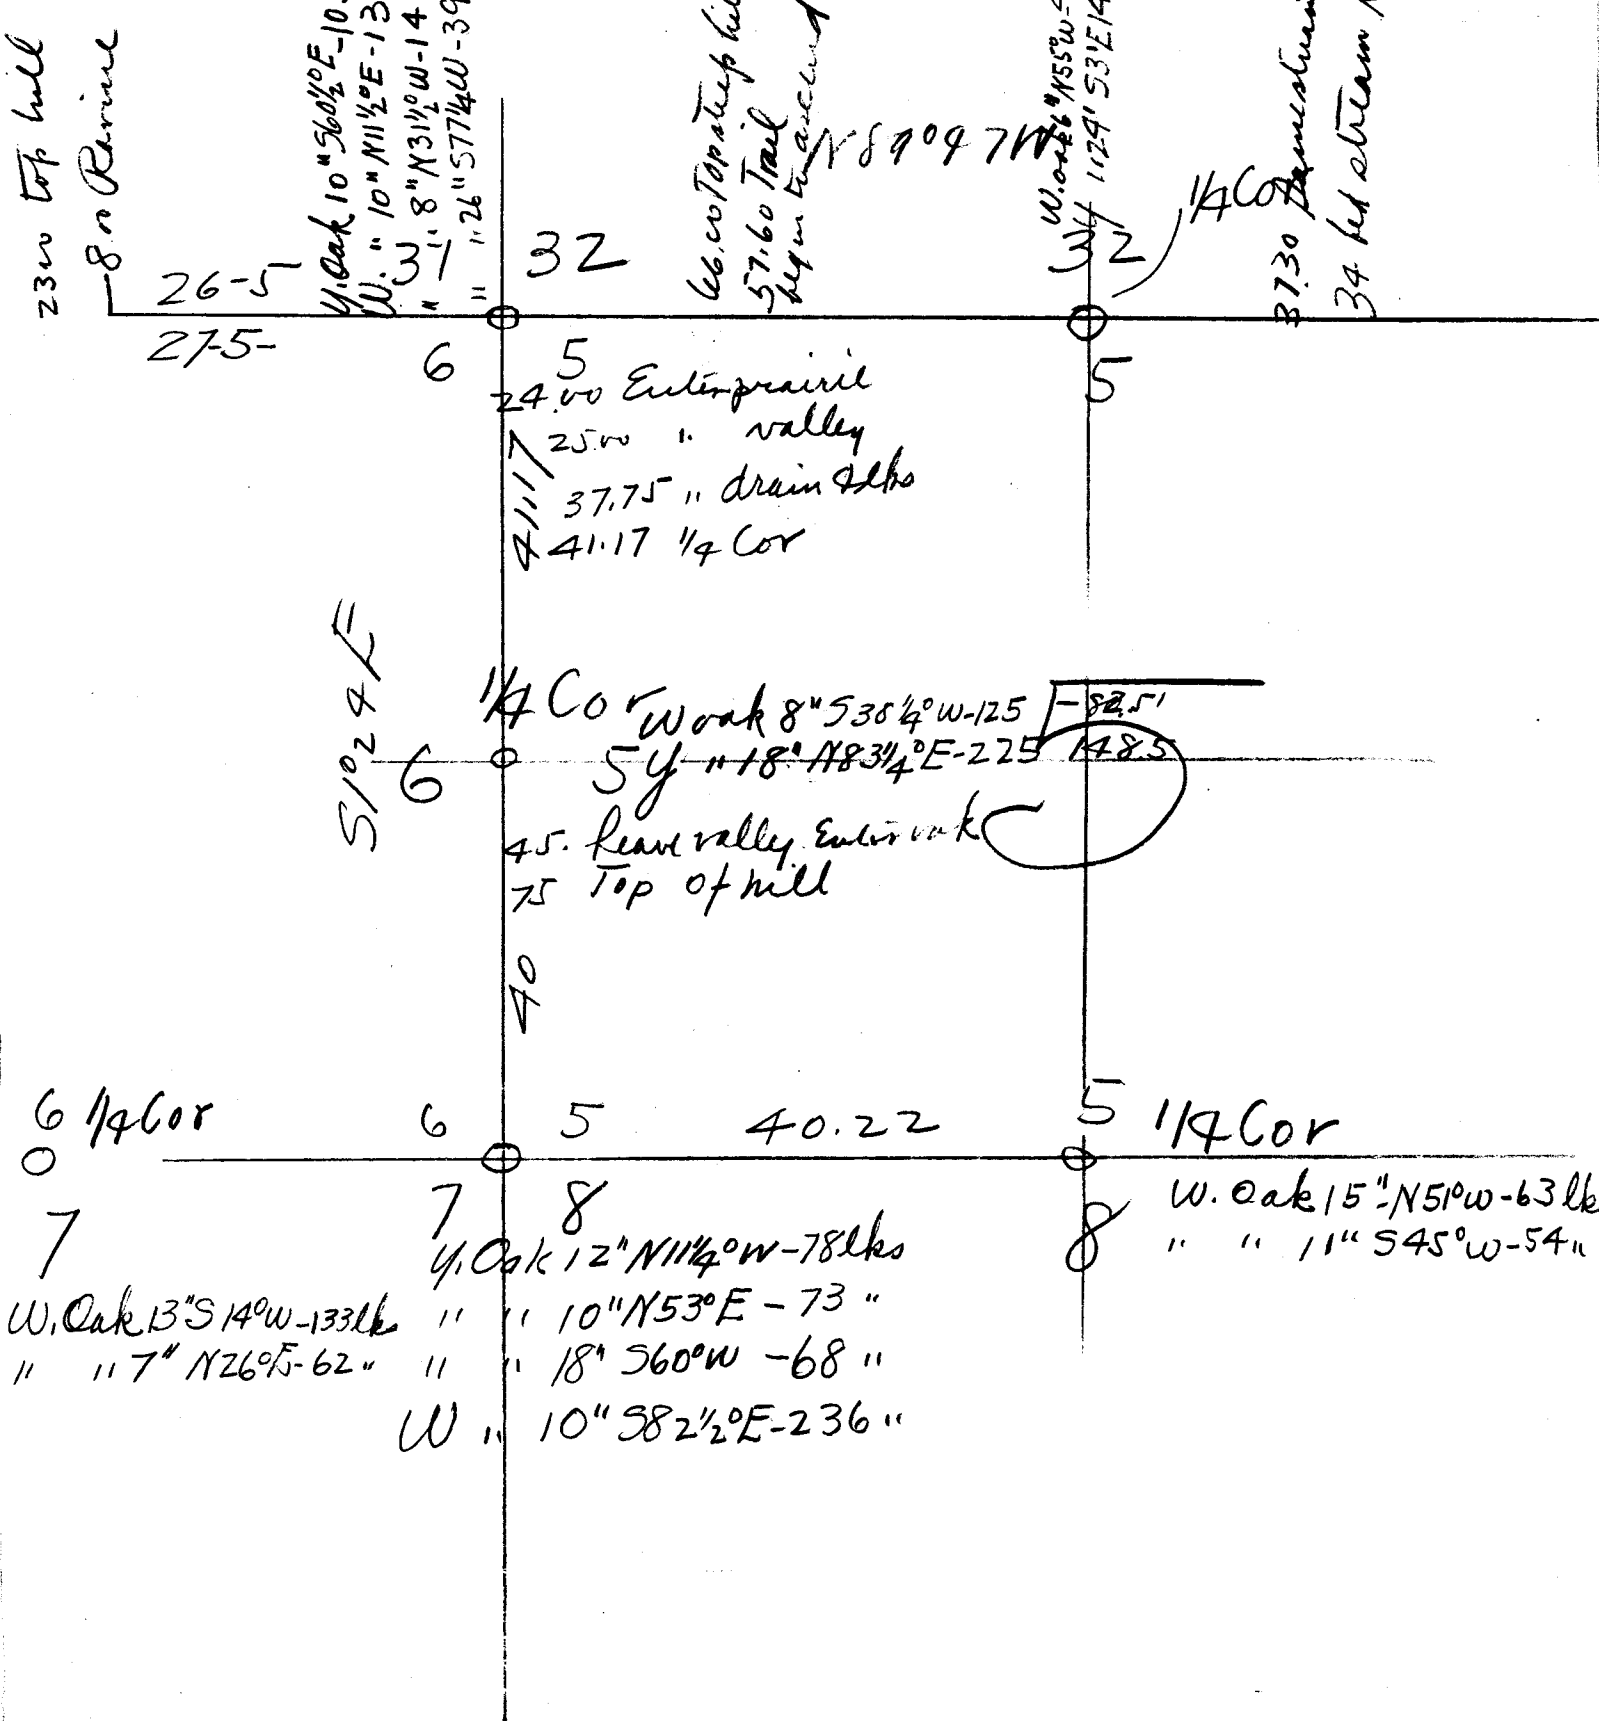 23.00 top hill
8.00 Ravine
26-5
27-5-
Y. Oak 10" S60½°E-10
W. " 10" N11½°E-13
" " 8" N31½°W-14
" " 26" S77¼W-39
31
32
66.00 Top steep
57.60 Trail
begin to ascend
N89°47W
W. oak 6" N55°W-
" 24" S3°E14
32
1/4 Cor
37.30
34 bed stream
6
5
5
24.00 Enter prairie
25.00 " valley
37.75 " drain 4 lks
41.17 1/4 Cor
41.17
S1°24E
1/4 Cor
6
5
W oak 8" S36¼°W-125 -82.5'
Y " 18" N83¼°E-225 148.5
45. Leave valley Enter oak
75 Top of hill
40
6 1/4 Cor
7
6
5
40.22
5
1/4 Cor
7
8
8
W. Oak 15" N51°W-63 lk
" " 11" S45°W-54 "
Y. Oak 12" N11¼°W-78 lks
" " 10" N53°E-73 "
" " 18" S60°W-68 "
W " 10" S82½°E-236 "
W. Oak 13" S14°W-133 lks
" " 7" N26°E-62 "